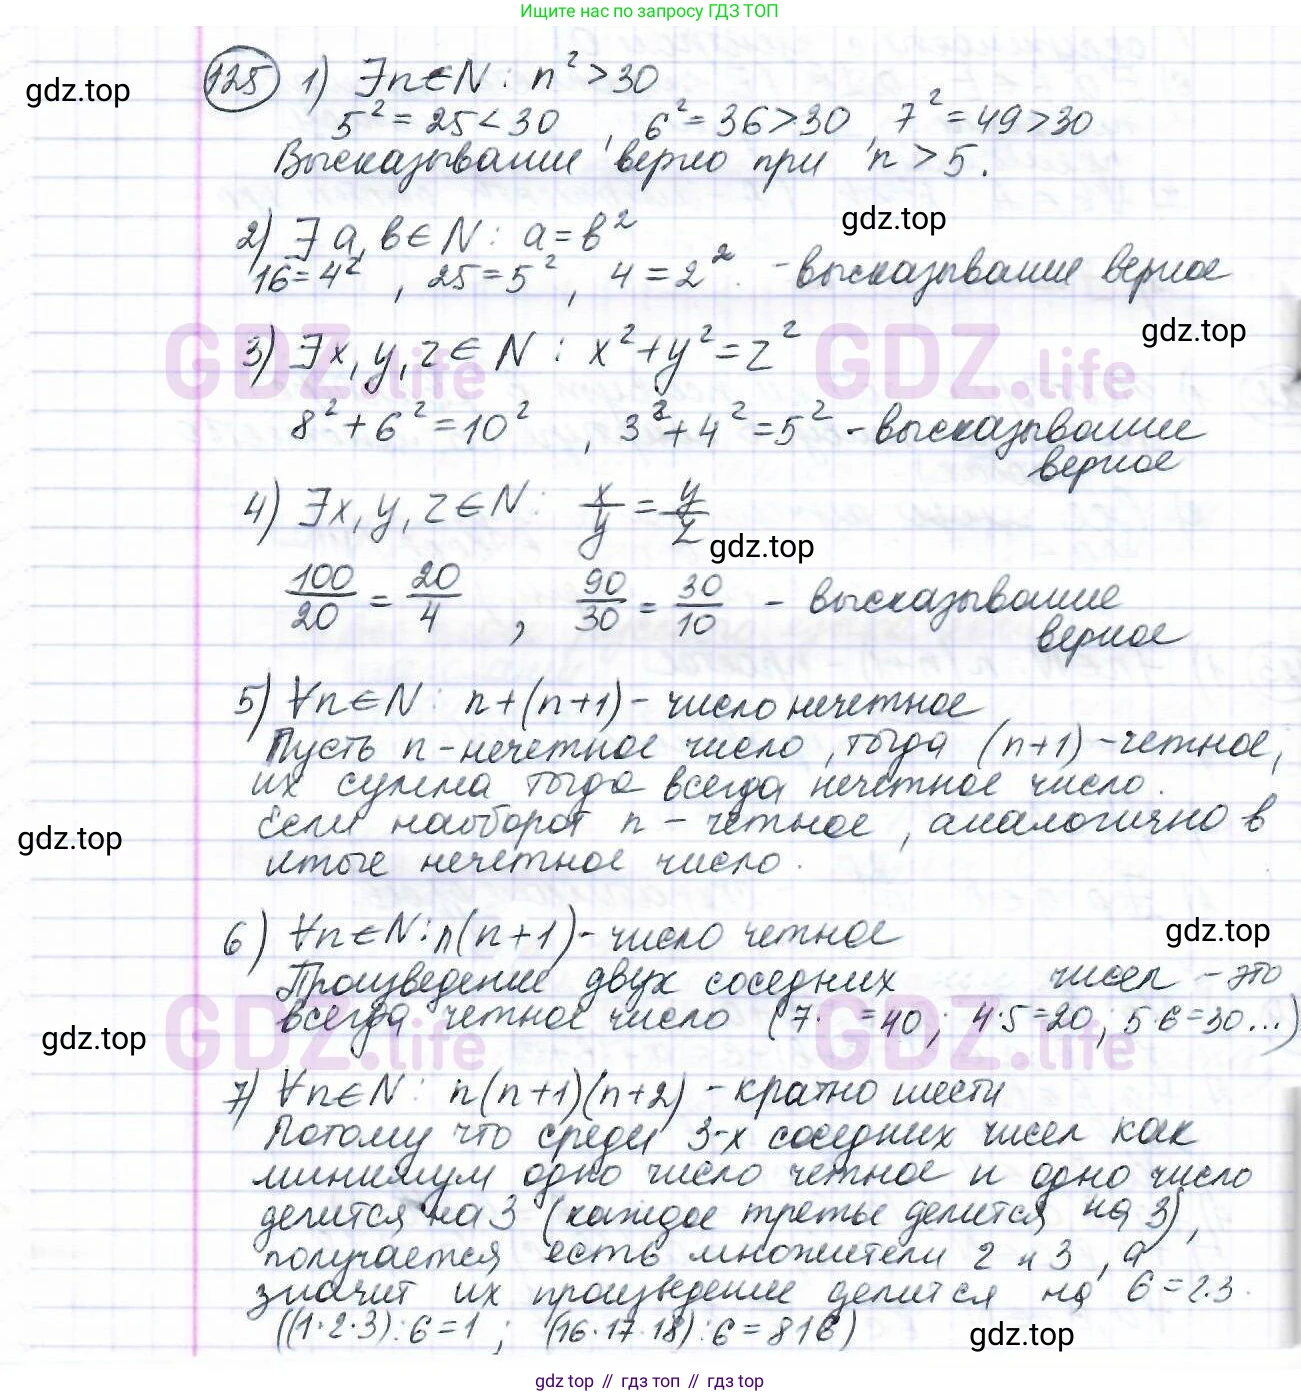 Ищите нас по запросу ГДЗ ТОП
125 1) ∃n∈N : n² > 30
gdz.top
5² = 25 < 30 , 6² = 36 > 30 , 7² = 49 > 30
Высказывание верно при n > 5.
gdz.top
2) ∃ a, b ∈ N : a = b²
16 = 4² , 25 = 5² , 4 = 2² - высказывание верное
gdz.top
3) ∃x, y, z ∈ N : x² + y² = z²
GDZ.life GDZ.life
8² + 6² = 10² , 3² + 4² = 5² - высказывание
верное
4) ∃x, y, z ∈ N : x/y = y/z
gdz.top
100/20 = 20/4 , 90/30 = 30/10 - высказывание
верное
5) ∀n∈N : n + (n+1) - число нечетное
Пусть n - нечетное число, тогда (n+1) - четное,
их сумма тогда всегда нечетное число.
Если наоборот n - четное, аналогично в
gdz.top
итоге нечетное число.
6) ∀n∈N : n(n+1) - число четное
gdz.top
Произведение двух соседних чисел - это
всегда четное число (7· =40; 4·5=20; 5·6=30...)
gdz.top
GDZ.life GDZ.life
7) ∀n∈N : n(n+1)(n+2) - кратно шести
Потому что среди 3-х соседних чисел как
минимум одно число четное и одно число
делится на 3 (каждое третье делится на 3),
получается есть множители 2 и 3, а
значит их произведение делится на 6 = 2·3.
((1·2·3):6=1 ; (16·17·18):6=816)
gdz.top
gdz top // гдз топ // gdz top